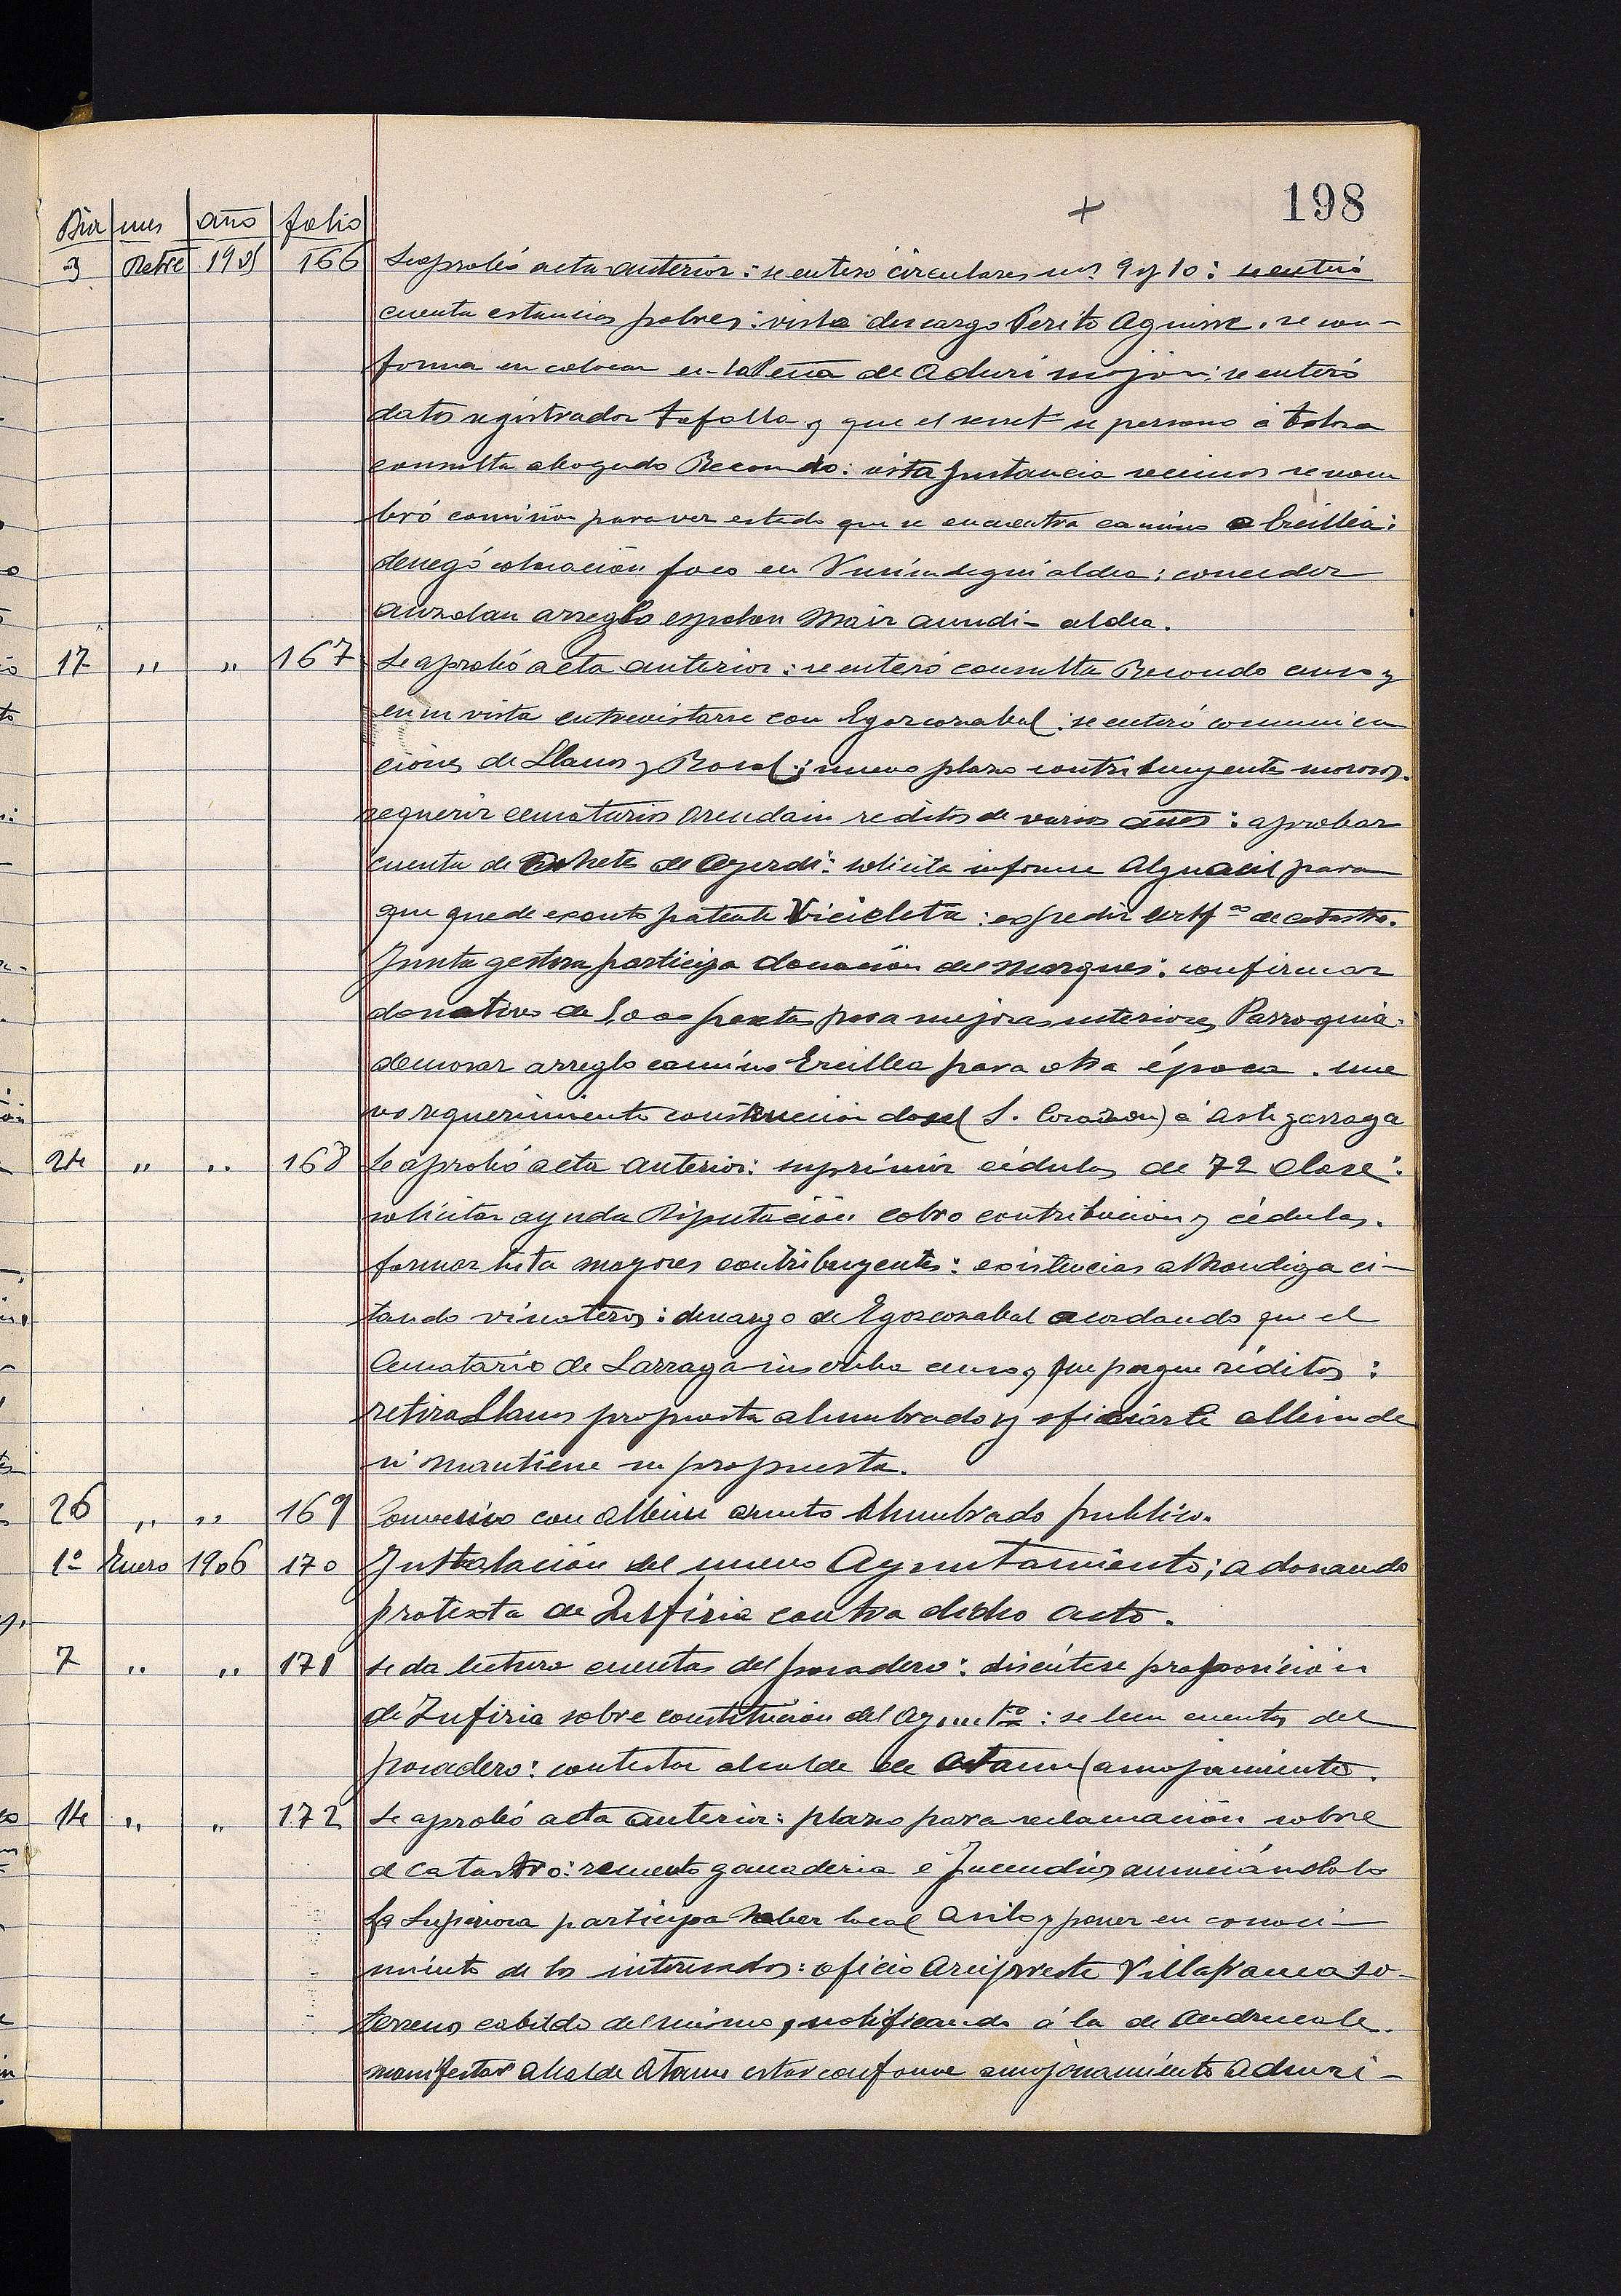 198
Dia mes año folio
3 Dbre 1905 166 Se aprobó acta anterior: se enteró circulares nos. 9 y 10: se enteró
cuenta estancias pobres: vista descargo Perito Aguirre, se con-
forma en colocar en la Peña de Aduri mojon; se enteró
datos registrador Tafalla y que el secret se persone á Tolosa
consulta abogado Recondo: vista Instancia vecinos se nom
bró comision para ver estado que se encuentra camino a Ercillea:
denegó colocacion foco en aldea; conceder
auzolan arreglo espolon Mair aundi-aldea.
17 " " 167 Se aprobó acta anterior: se enteró consulta Recondo censo y
en su vista entrevistarse con Egoscozabal: se enteró comunica
ciones de Llanos y Rosal: nuevo plazo contribuyentes morosos.
requerir censatarios Arendain reditos de varios años: aprobar
cuenta de cohete de Ayerdi: solicita informe Alguacil para
que quede exento patente Vicicleta: expedir certfon de catastro.
Junta gestora participa donación del marques: confirmar
donativo de 1,000 pesetas para mejoras interiores Parroquia:
demorar arreglo camino Ercillea para otra época. nue
vo requerimiento construccion dosel (S. Corazon) á Astigarraga
24 " " 168 Se aprobó acta anterior: suprimir cédulas de 72 clase:
solicitar ayuda Diputación cobro contribucion y cédulas.
formar lista mayores contribuyentes: existencias alhondiga ci-
tando vinateros: descargo de Egoscozabal acordando que el
Censatario de Larraga inscriba censo y que pague réditos:
retira Llanos propuesta alumbrado y oficiarle Albein de
si mantiene su propuesta.
26 " " 169 Convenio con Albein asunto Alumbrado publico.
1º Enero 1906 170 Instalación del nuevo Ayuntamiento; adonando
protesta de Zufiria contra dicho acto.
7 " " 171 Se da lectura cuentas del posadero: discútese proposición
de Zufiria sobre constitución del Ayuntº: se leen cuentas del
posadero: contestar alcalde de Ataun (amojonamiento.
14 " " 172 Se aprobó acta anterior: plazo para reclamación sobre
el catastro: recuento ganaderia é Incendios anunciándolo
La Superiora participa haber local Asilo y poner en conoci-
miento de los interesados: oficio Arcipreste Villafranca so-
terreno cabildo del mismo, notificando á la de
manifestar Alcalde Ataun estar conforme amojonamiento Aduri-